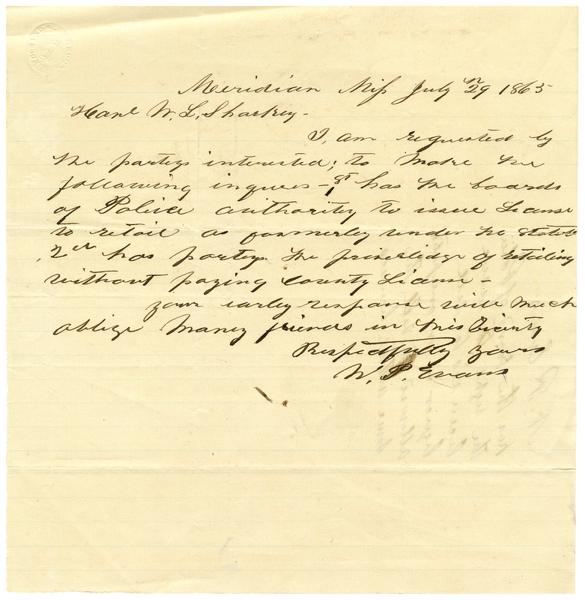 Meridian Miss July 29th 1865
Hanl W. L. Sharkey -
I, am requested by
the partys interested; to make the
following inqueres - 1st has the boards
of Police authority to issue License
to retail as formerly under the statute
2nd has partys the priverlidge of retailing
without paying County License -
your early response will much
oblige Maney friends in this Vicinty
Respectfully yours
W. P. Evans